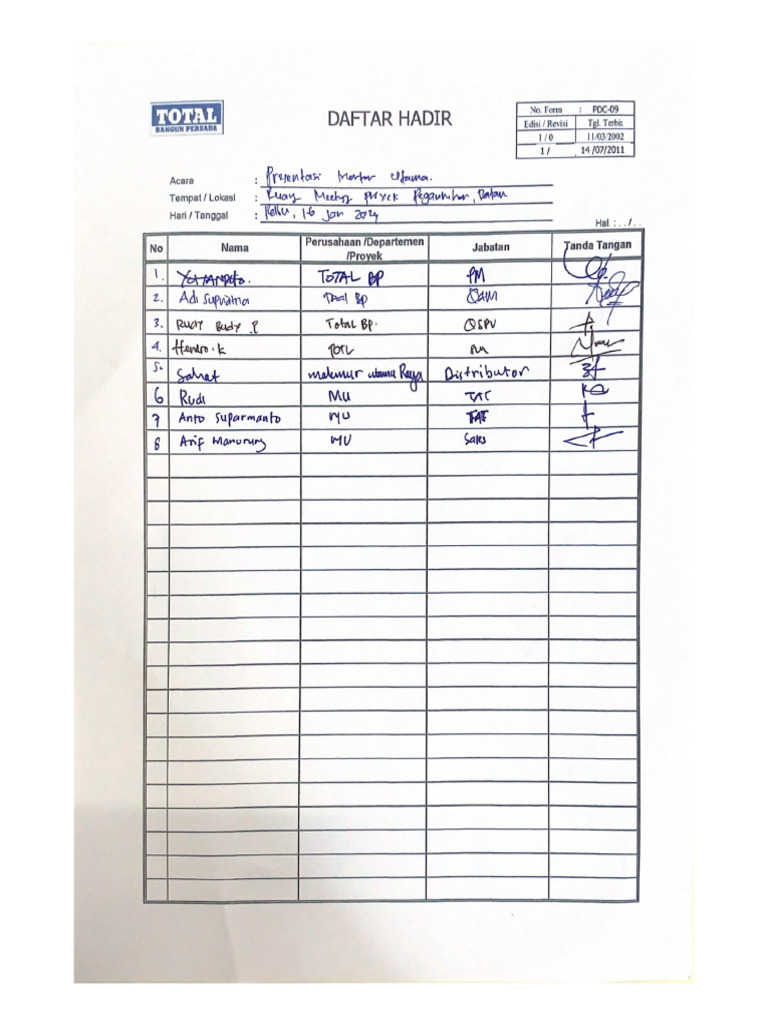 TOTAL
BANGUN PERSADA
DAFTAR HADIR
No. Form : PDC-09
Edisi / Revisi Tgl. Terbit
1 / 0 11/03/2002
1 / 14 /07/2011
Acara : Presentasi Mortar Utama.
Tempat / Lokasi : Ruang Meeting Proyek
Hari / Tanggal : Rabu, 16 Jan 2024
Hal. : . . / . .
No Nama Perusahaan /Departemen /Proyek Jabatan Tanda Tangan
1. TOTAL BP PM
2. Adi Supriatna Total BP QAIM
3. Rudy Budy P Total BP. QSPV
4. Hendro.k TOTL
5. Sahat makmur utama Raya Distributor
6 Rudi MU
7 Anto Suparmanto MU TAT
8 Arif Manurung MU Sales